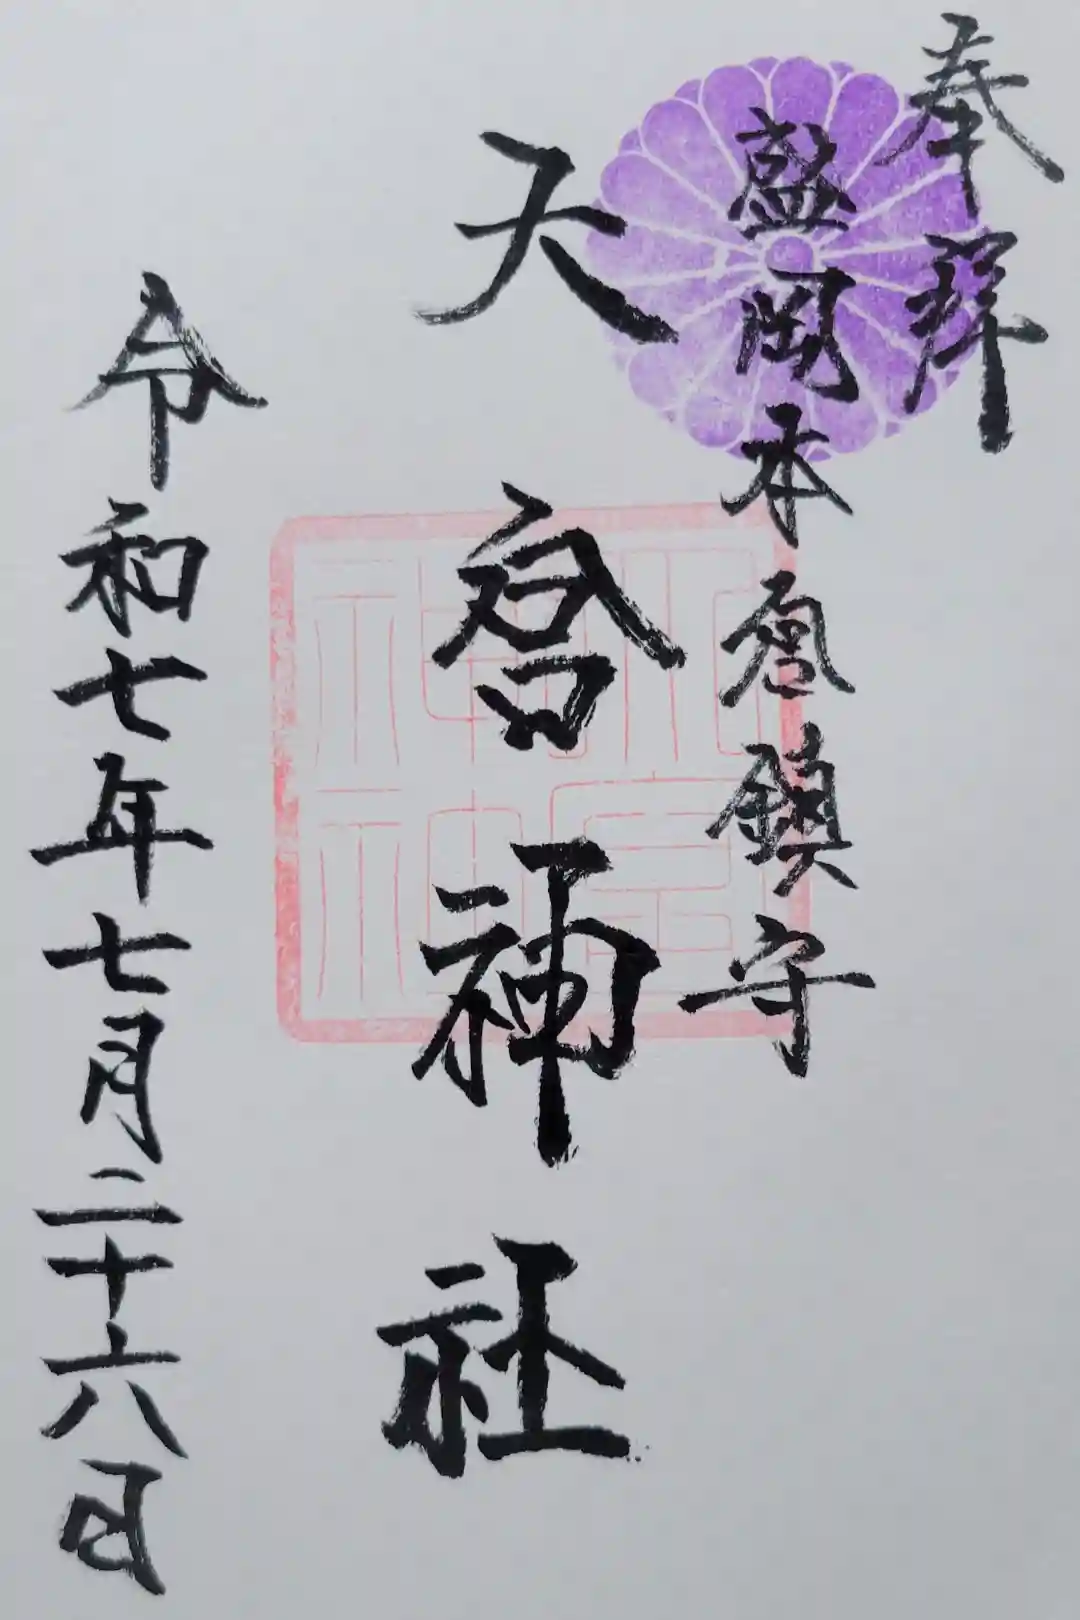 奉拜
盛岡本宮鎮守
大宮神社
令和七年七月二十六日